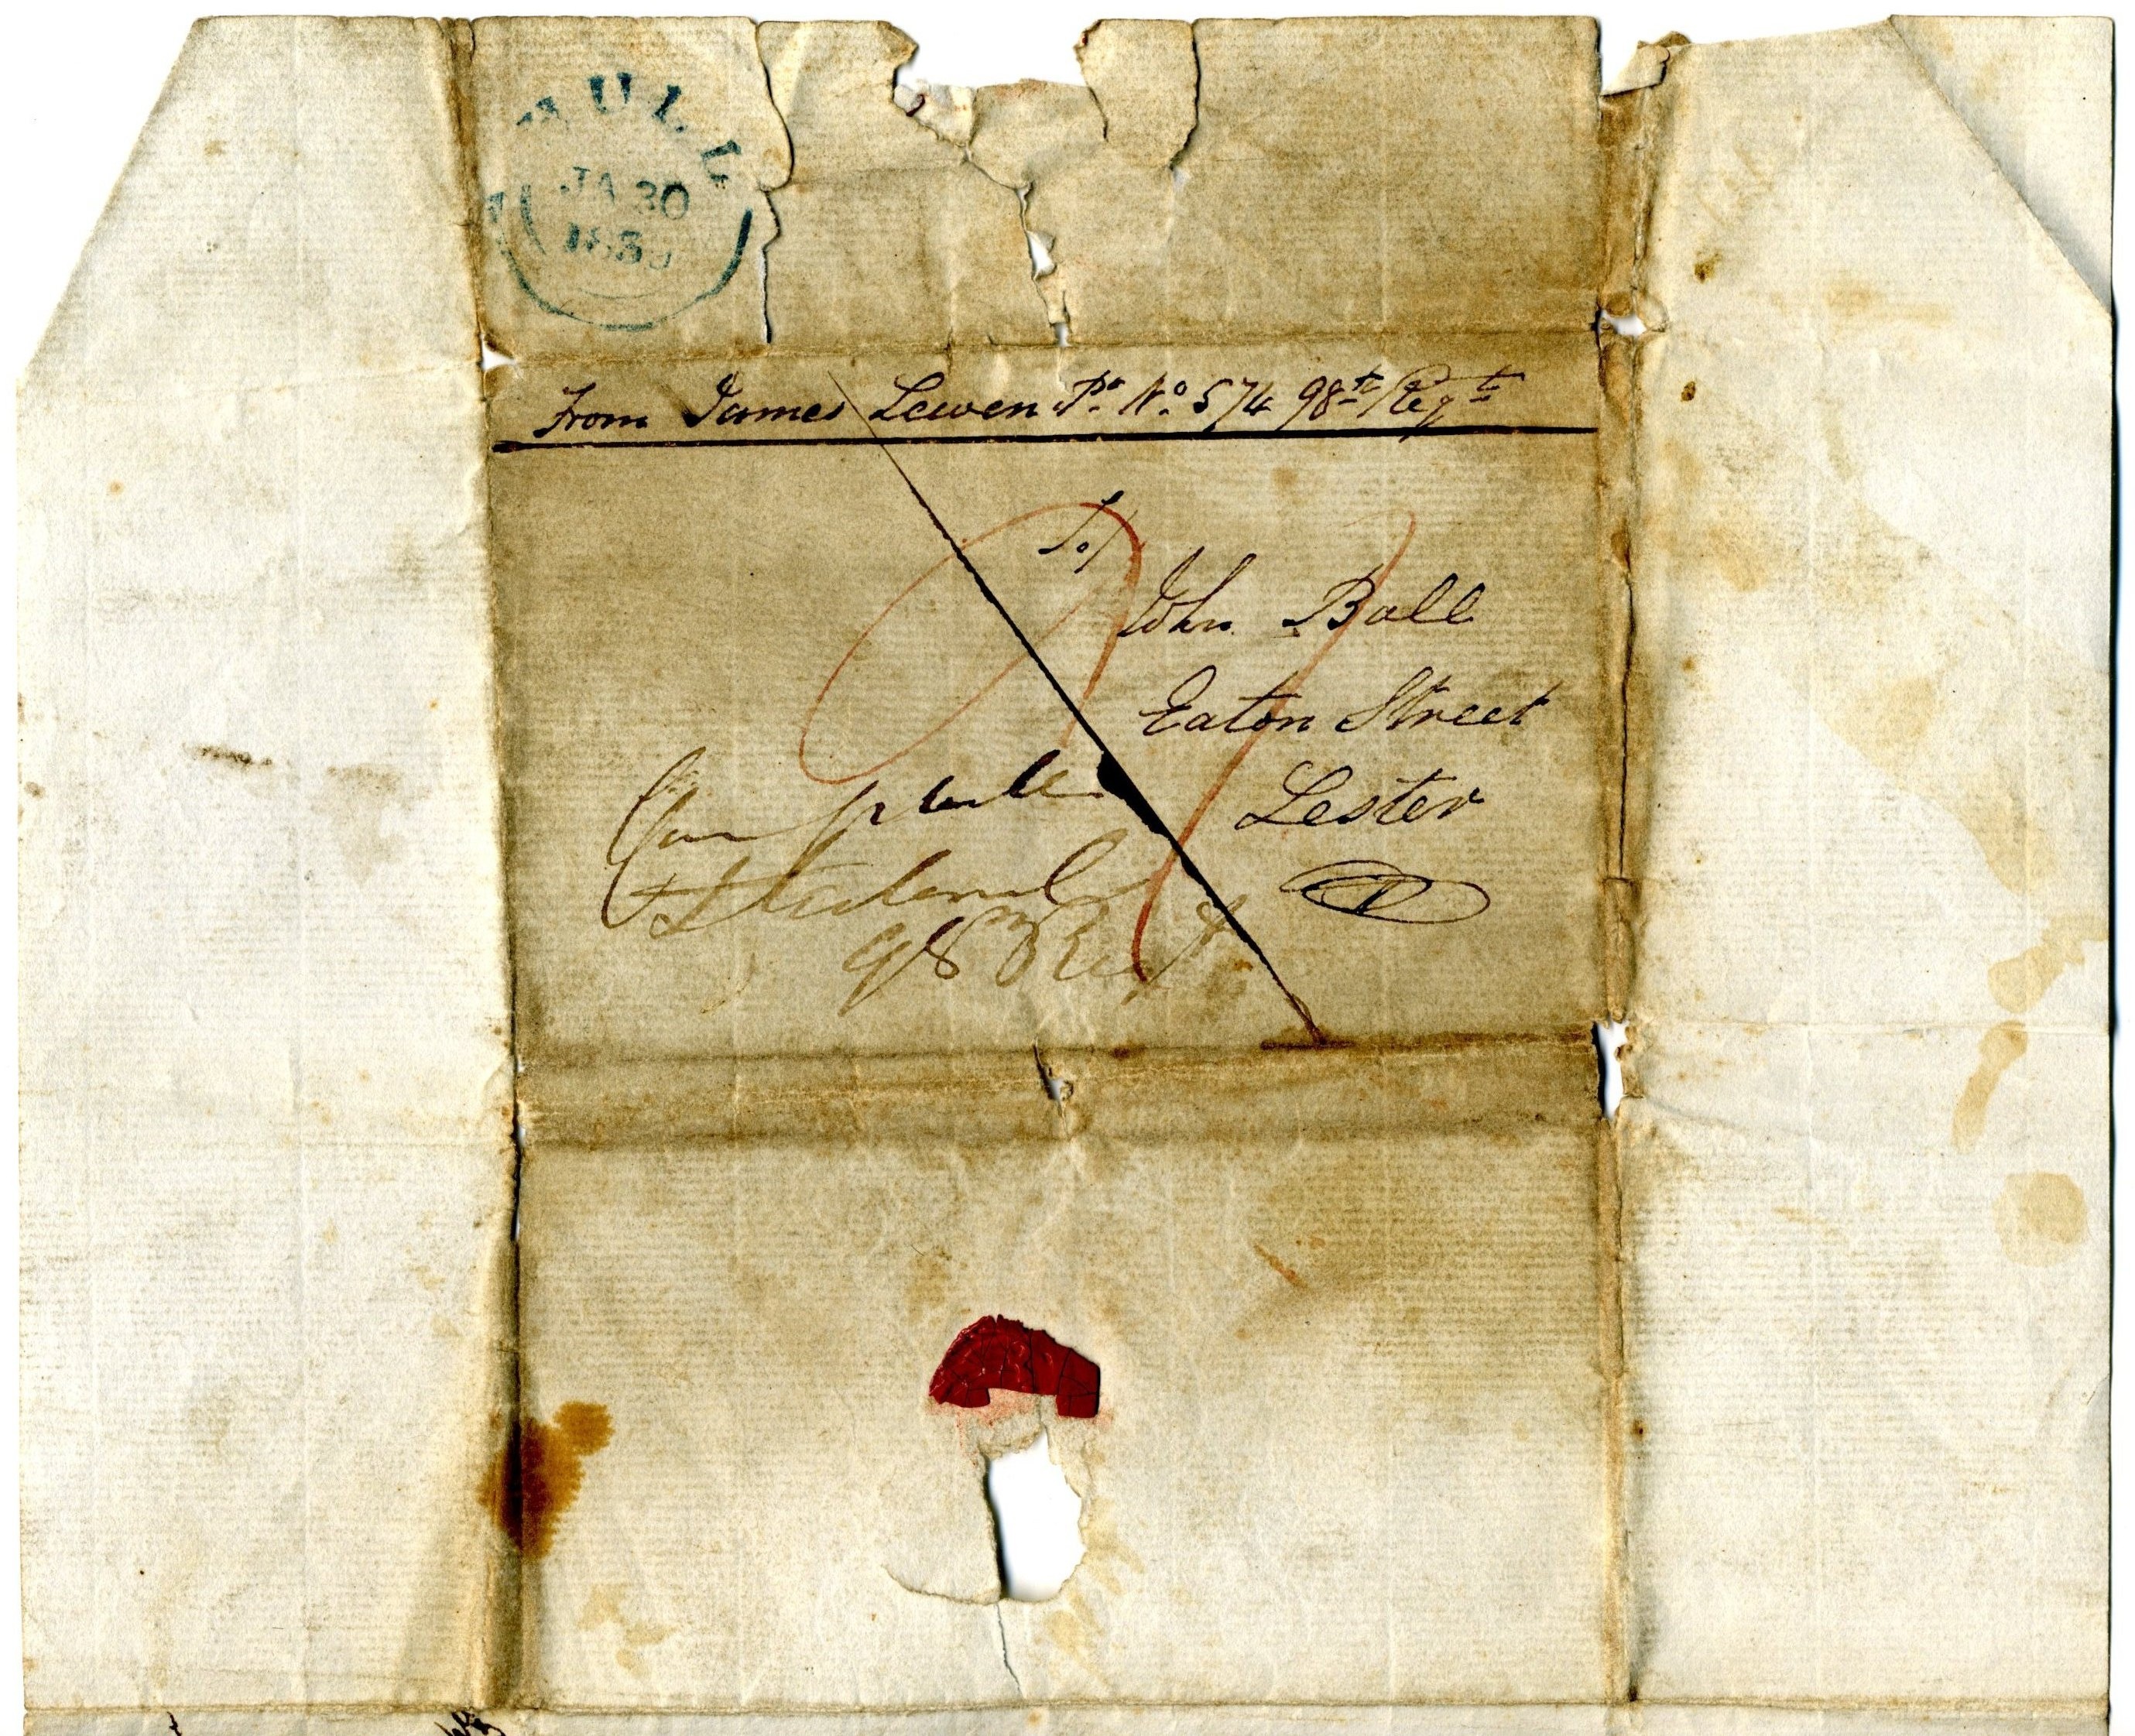 HULL
JA 30
1839
From James Lewen Pr. No. 574 98th Regt
To/
John Ball
Eaton Street
Lester
Campbell
98 Regt